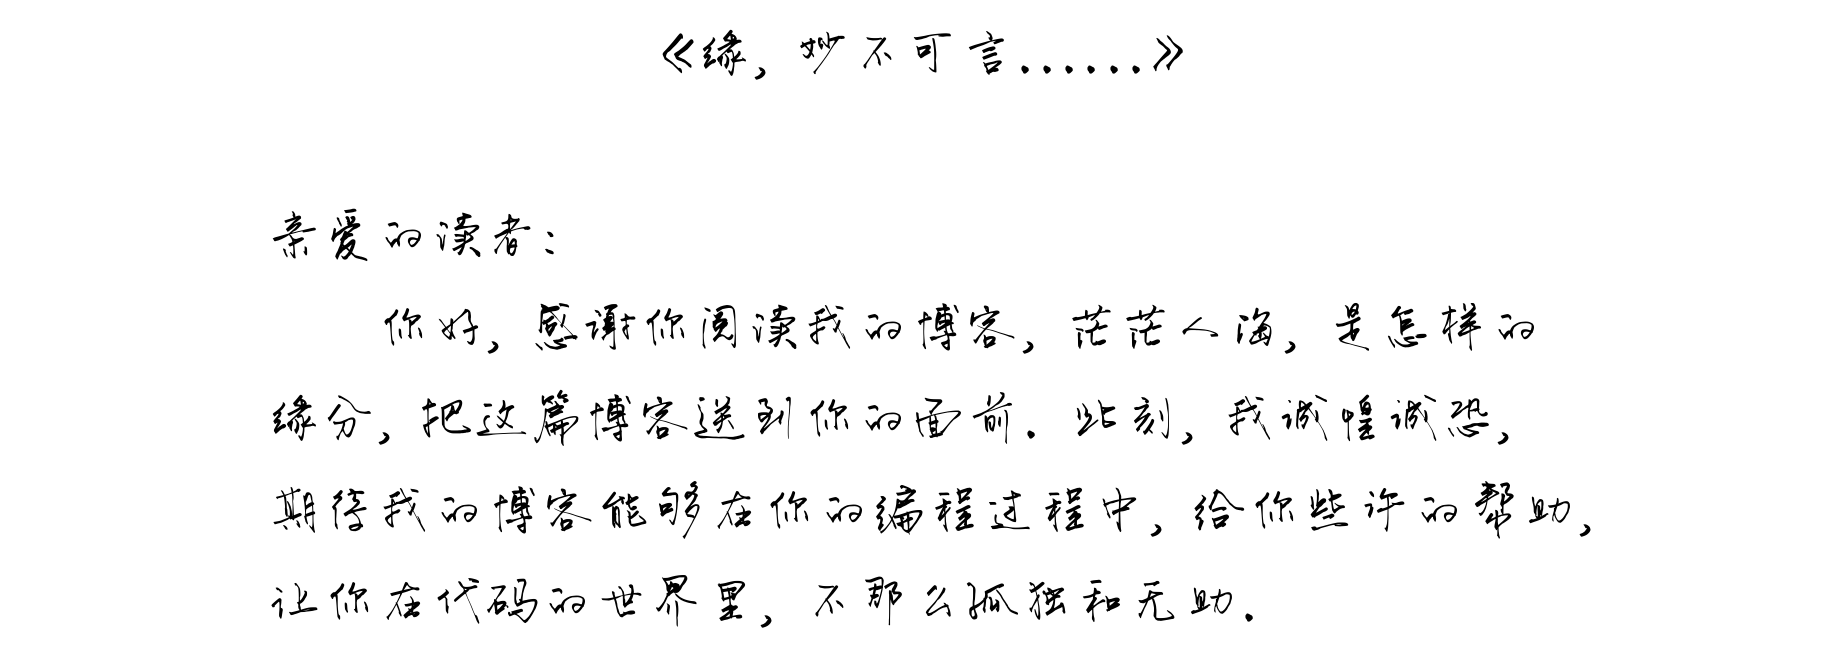 《缘，妙不可言......》
亲爱的读者：
你好，感谢你阅读我的博客，茫茫人海，是怎样的
缘分，把这篇博客送到你的面前.此刻，我诚惶诚恐，
期待我的博客能够在你的编程过程中，给你些许的帮助，
让你在代码的世界里，不那么孤独和无助.